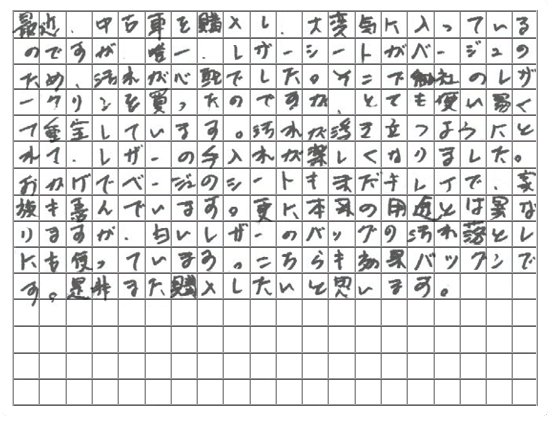 最近、中古車を購入し、大変気に入っている
のですが、唯一、レザーシートがベージュの
ため、汚れが心配でした。そこで御社のレザ
ークリンを買ったのですが、とても使い易く
て重宝しています。汚れが浮き立つようにと
れて、レザーの手入れが楽しくなりました。
おかげでベージュのシートもまだキレイで、家
族も喜んでいます。更に本来の用途とは異な
りますが、白いレザーのバッグの汚れ落とし
にも使っています。こちらも効果バツグンで
す。是非また購入したいと思います。